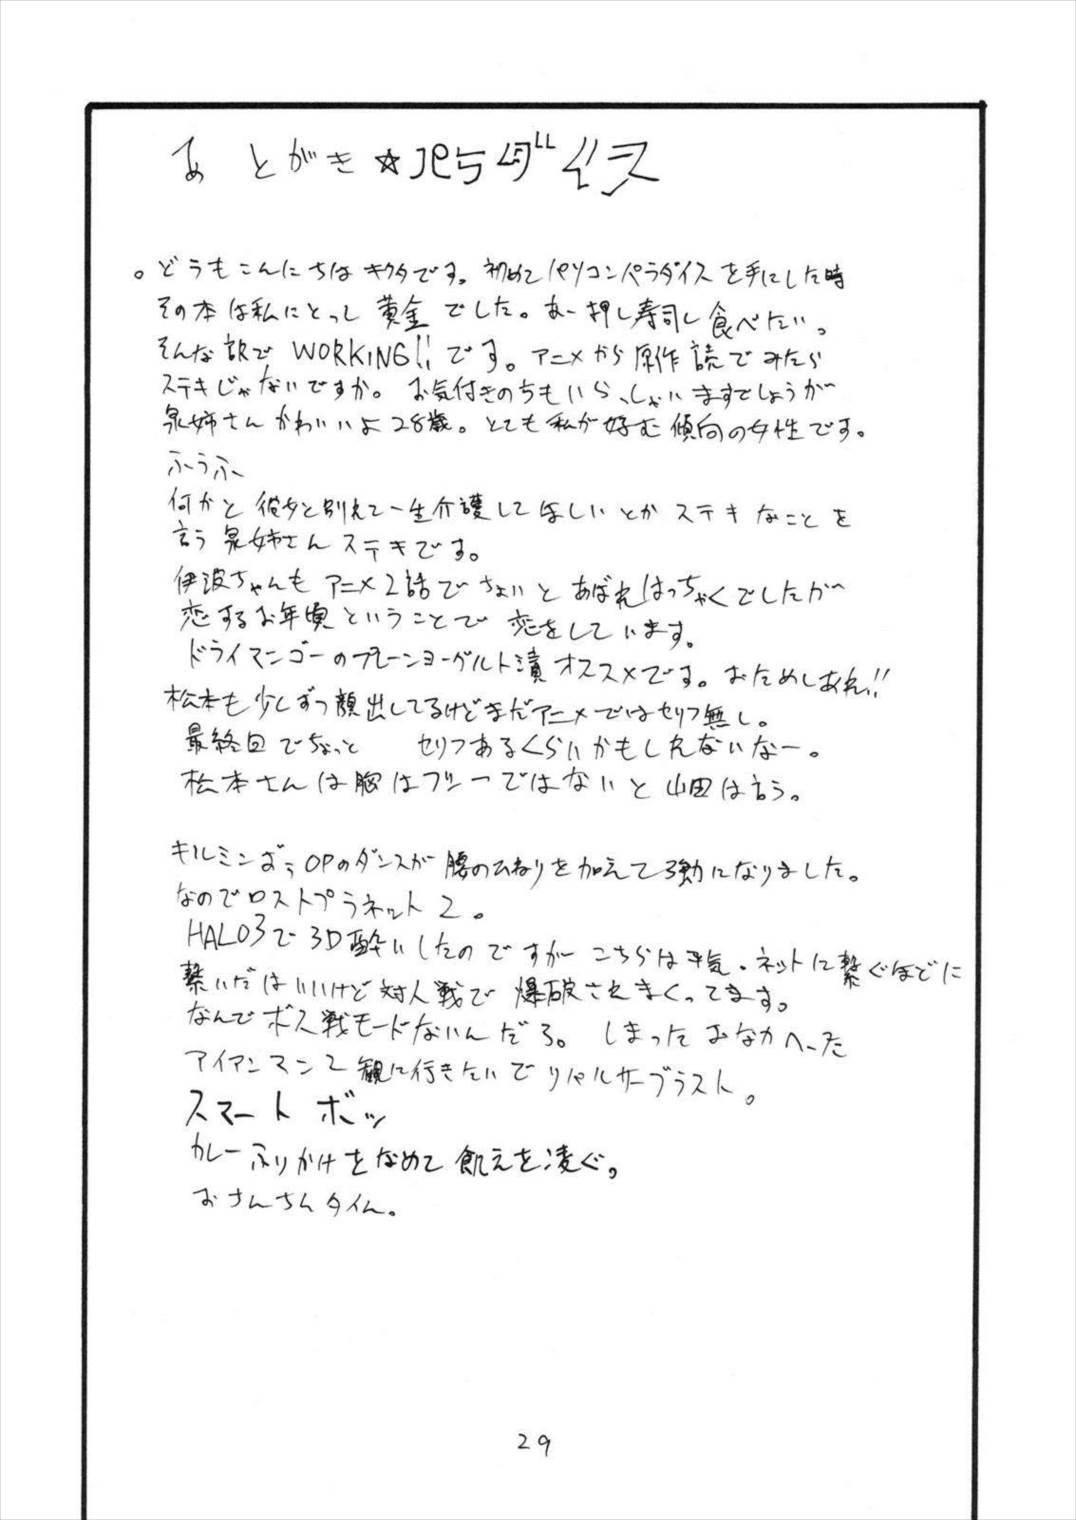 あとがき☆パラダイス
。どうもこんにちはキクタです。初めてパソコンパラダイスを手にした時
その本は私にとって黄金でした。あー押し寿司し食べたい。
そんな訳でWORKING!!です。アニメから原作読でみたら
ステキじゃないですか。お気付きのちもいらっしゃいますでしょうが
泉姉さんかわいいよ28歳。とても私が好む傾向の女性です。
ふうふ
何かと彼女と別れて一生介護してほしいとかステキなことを
言う泉姉さんステキです。
伊波ちゃんもアニメ2話でちょいとあばれはっちゃくでしたが
恋するお年頃ということで恋をしています。
ドライマンゴーのプレーンヨーグルト漬オススメです。おためしあれ!!
松本も少しずつ顔出してるけどまだアニメではセリフ無し。
最終回でちょっと セリフあるくらいかもしれないなー。
松本さんは胸はフリーではないと山田は言う。
キルミンずぅOPのダンスが腰のひねりを加えて強力になりました。
なのでロストプラネット2。
HALO3で3D酔いしたのですがこちらは平気。ネットに繋ぐほどに
繋いだはいいけど対人戦で爆破されまくってます。
なんでボス戦モードないんだろ。しまったおなかへった
アイアンマン2観に行きたいでリパルサーブラスト。
スマートボッ
カレーふりかけをなめて飢えを凌ぐ。
おさんちんタイム。
29